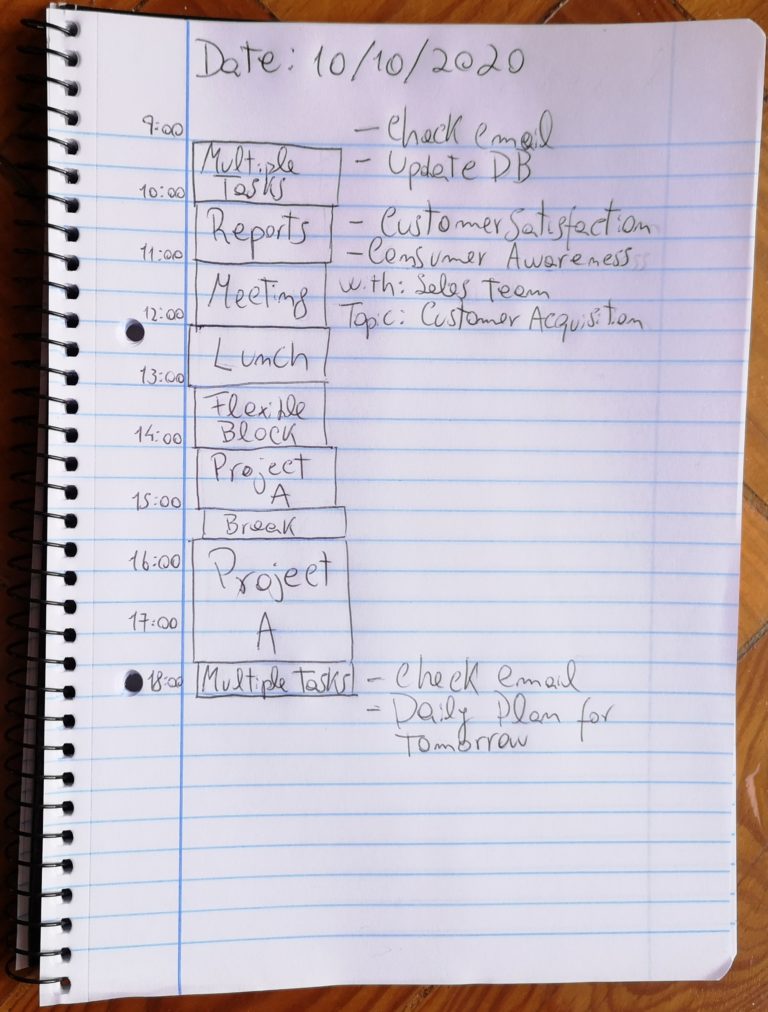 Date: 10/10/2020
9:00
- Check email
Multiple
Tasks
- Update DB
10:00
Reports
- Customer Satisfaction
11:00
- Consumer Awareness
Meeting
with: Sales Team
12:00
Topic: Customer Acquisition
Lunch
13:00
Flexible
Block
14:00
Project
A
15:00
Break
16:00
Project
17:00
A
18:00
Multiple Tasks
- Check email
- Daily Plan for
Tomorrow